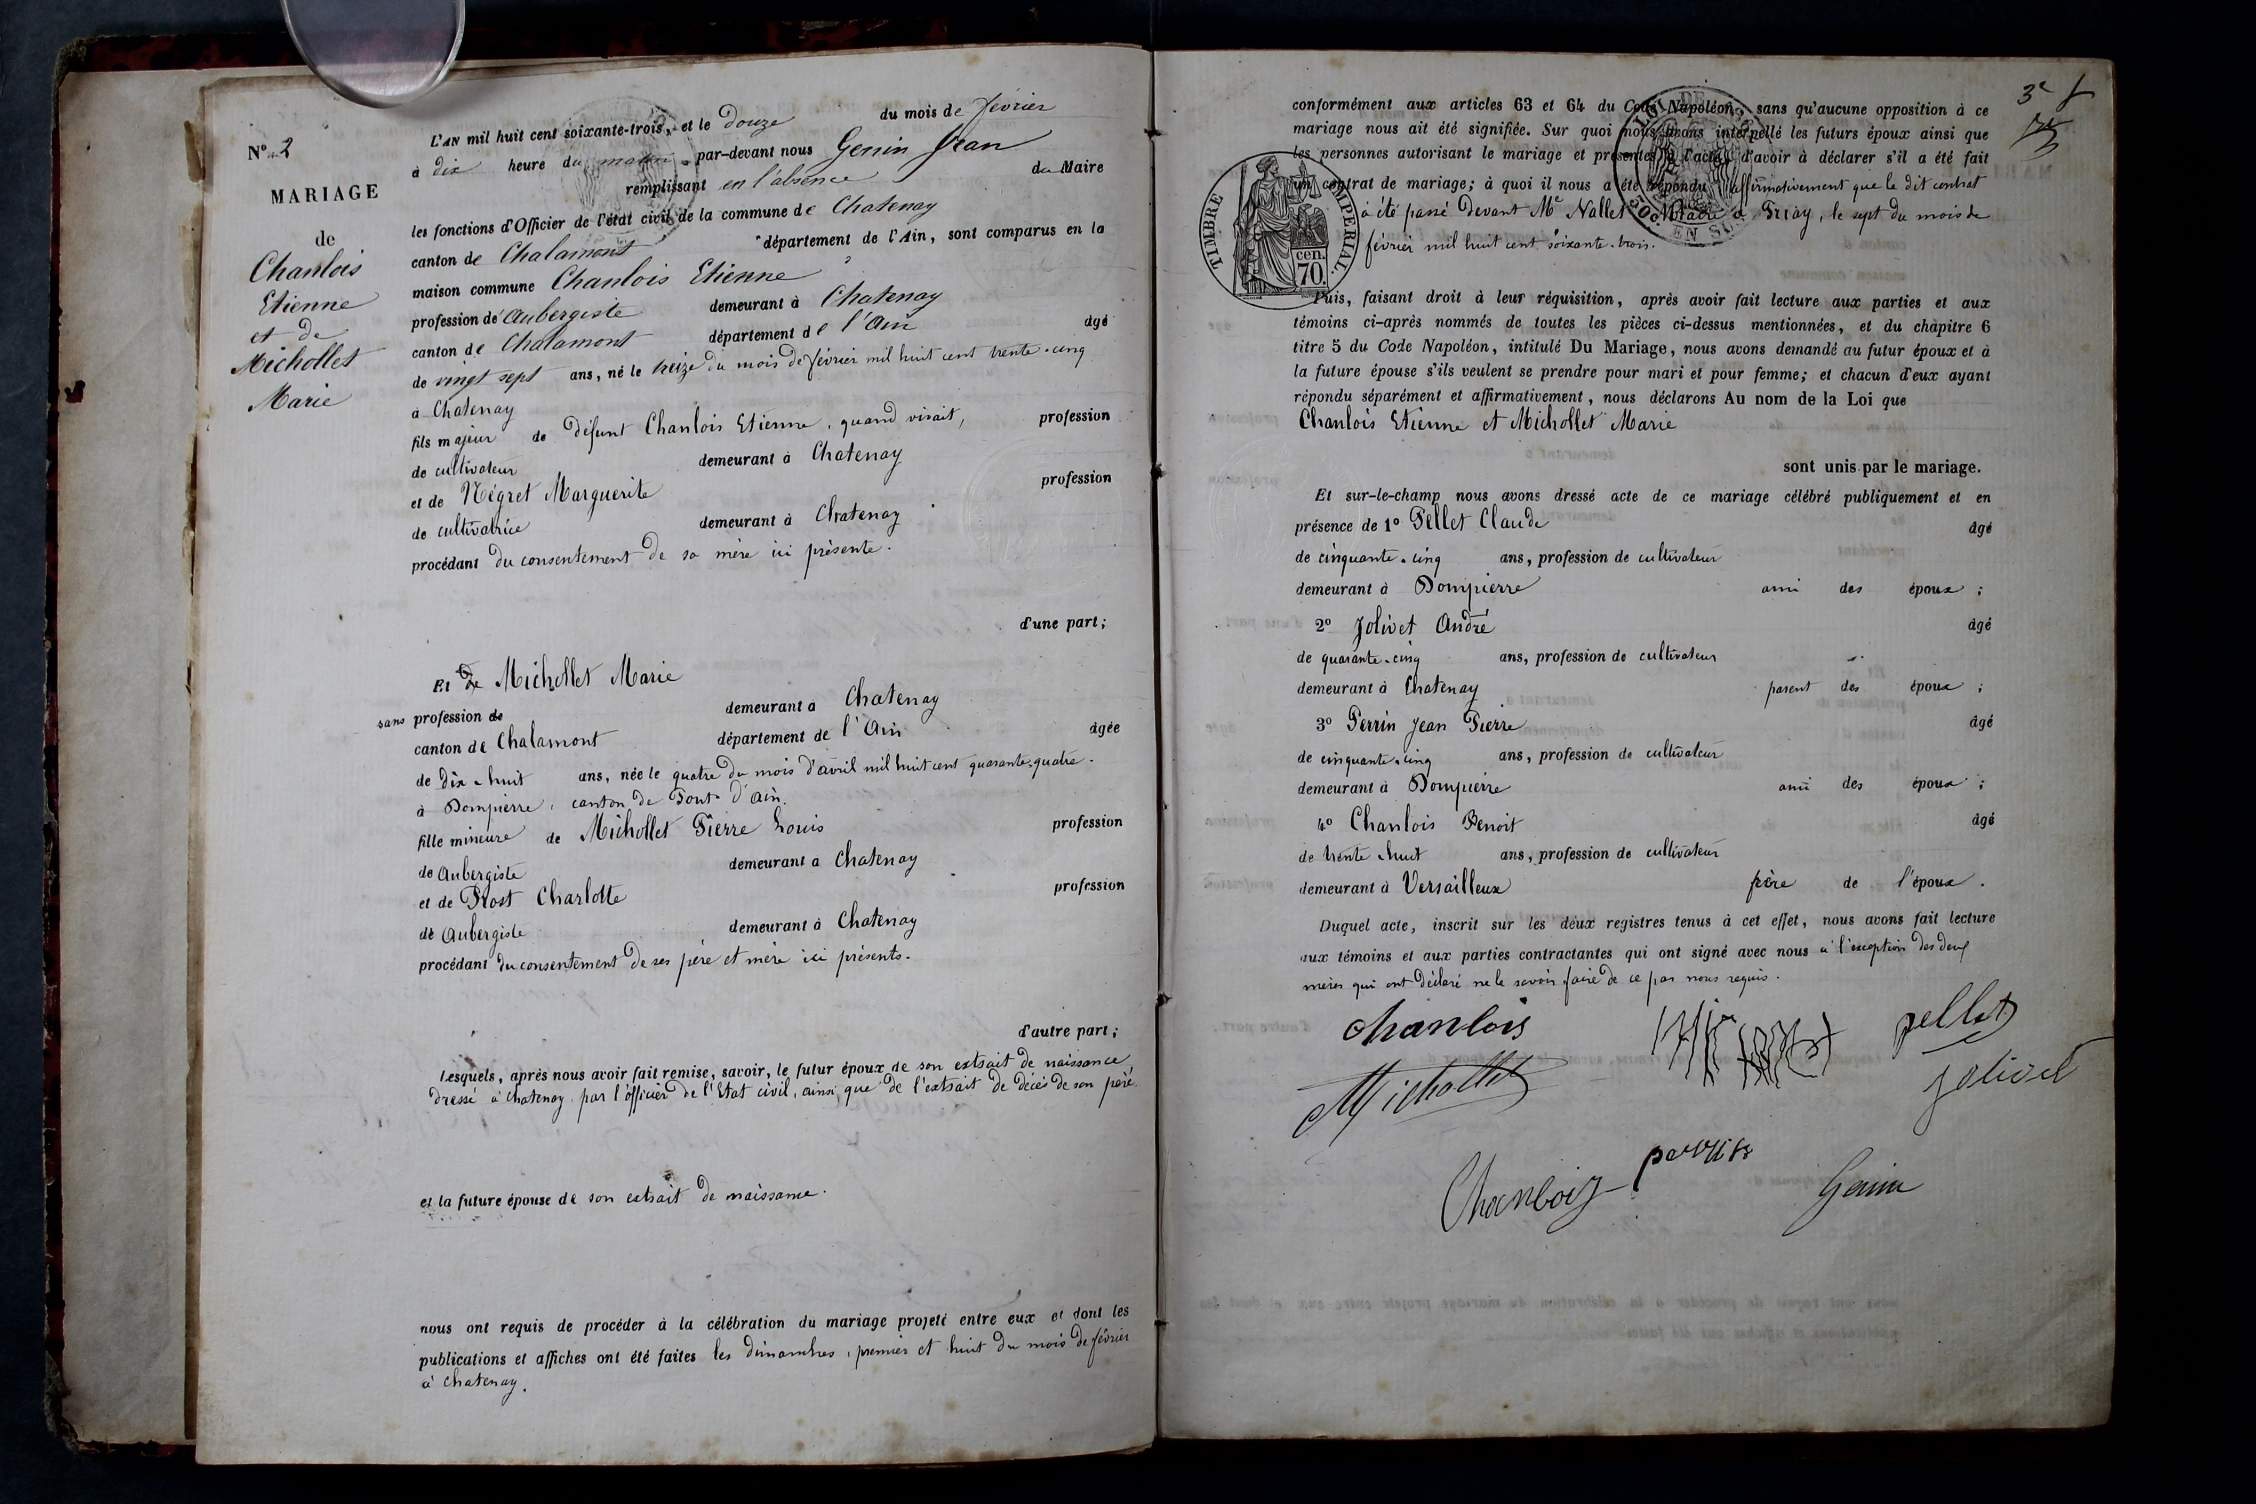 N° 2
MARIAGE
de
Chanlois
Etienne
et de
Michollet
Marie
L'AN mil huit cent soixante-trois, et le douze du mois de février
à dix heure du matin par-devant nous Genin Jean
remplissant en l'absence du Maire
les fonctions d'Officier de l'état civil de la commune de Chatenay
canton de Chalamont département de l'Ain, sont comparus en la
maison commune Chanlois Etienne
profession de Aubergiste demeurant à Chatenay
canton de Chalamont département de l'Ain âgé
de vingt sept ans, né le treize du mois de février mil huit cent trente-cinq
à Chatenay
fils majeur de défunt Chanlois Etienne, quand vivait, profession
de cultivateur demeurant à Chatenay
et de Négret Marguerite profession
de cultivatrice demeurant à Chatenay
procédant du consentement de sa mère ici présente.
d'une part;
Et de Michollet Marie
sans profession de demeurant à Chatenay
canton de Chalamont département de l'Ain âgée
de dix-huit ans, née le quatre du mois d'avril mil huit cent quarante-quatre.
à Dompierre, canton de Pont d'Ain.
fille mineure de Michollet Pierre Louis profession
de Aubergiste demeurant à Chatenay
et de Prost Charlotte profession
de Aubergiste demeurant à Chatenay
procédant du consentement de ses père et mère ici présents.
d'autre part;
Lesquels, après nous avoir fait remise, savoir, le futur époux de son extrait de naissance
dressé à Chatenay par l'officier de l'Etat civil, ainsi que de l'extrait de décès de son père
et la future épouse de son extrait de naissance.
nous ont requis de procéder à la célébration du mariage projeté entre eux et dont les
publications et affiches ont été faites les dimanches, premier et huit du mois de février
à Chatenay.
3e
conformément aux articles 63 et 64 du Code Napoléon, sans qu'aucune opposition à ce
mariage nous ait été signifiée. Sur quoi nous avons interpellé les futurs époux ainsi que
les personnes autorisant le mariage et présentes à l'acte, d'avoir à déclarer s'il a été fait
un contrat de mariage; à quoi il nous a été répondu affirmativement que le dit contrat
a été passé devant Me Nallet Notaire à Priay, le sept du mois de
février mil huit cent soixante-trois.
TIMBRE IMPERIAL.
70 cen.
LOI DE
50c. EN SUS
Puis, faisant droit à leur réquisition, après avoir fait lecture aux parties et aux
témoins ci-après nommés de toutes les pièces ci-dessus mentionnées, et du chapitre 6
titre 5 du Code Napoléon, intitulé Du Mariage, nous avons demandé au futur époux et à
la future épouse s'ils veulent se prendre pour mari et pour femme; et chacun d'eux ayant
répondu séparément et affirmativement, nous déclarons Au nom de la Loi que
Chanlois Etienne et Michollet Marie
sont unis par le mariage.
Et sur-le-champ nous avons dressé acte de ce mariage célébré publiquement et en
présence de 1° Pellet Claude âgé
de cinquante-cinq ans, profession de cultivateur
demeurant à Dompierre ami des époux ;
2° Jolivet André âgé
de quarante-cinq ans, profession de cultivateur
demeurant à Chatenay parent des époux ;
3° Perrin Jean Pierre âgé
de cinquante-cinq ans, profession de cultivateur
demeurant à Dompierre ami des époux ;
4° Chanlois Benoit âgé
de trente-huit ans, profession de cultivateur
demeurant à Versailleux frère de l'époux.
Duquel acte, inscrit sur les deux registres tenus à cet effet, nous avons fait lecture
aux témoins et aux parties contractantes qui ont signé avec nous à l'exception des deux
mères qui ont déclaré ne le savoir faire de ce par nous requis.
Chanlois
pellet
Michollet
jolivet
perrin
Chanloiz
Genin